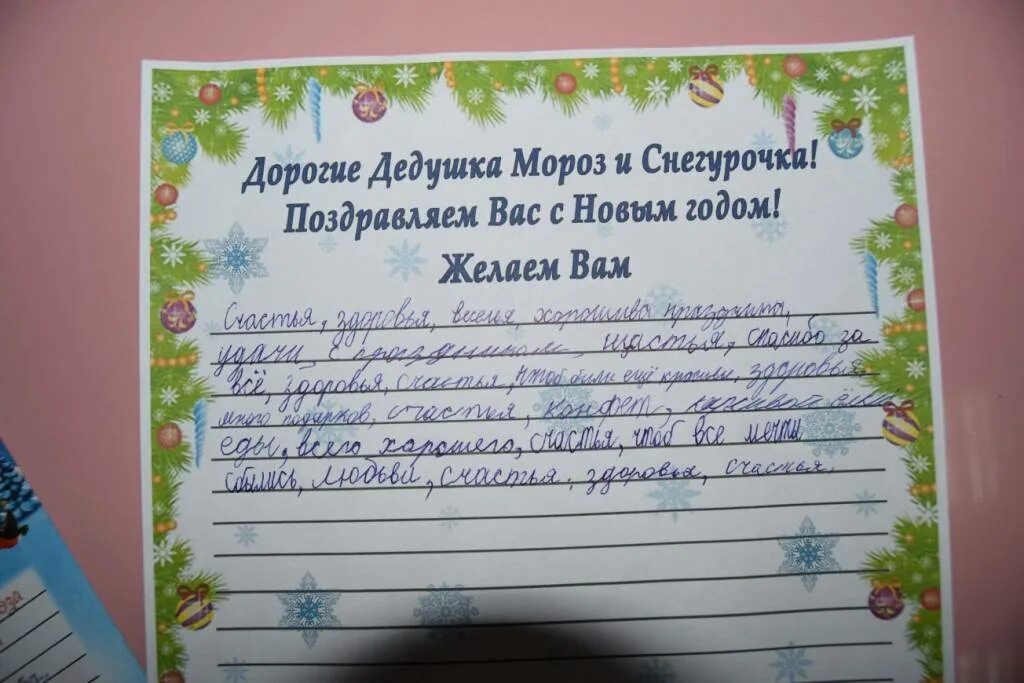 Дорогие Дедушка Мороз и Снегурочка!
Поздравляем Вас с Новым годом!
Желаем Вам
Счастья, здоровья, веселья, хорошива праздника,
удачи, с праздником, щастья, спасибо за
всё, здоровья, счастья, чтоб были ещё красивы, здоровья
много подарков, счастья, конфет, красивой ёлки
еды, всего хорошего, счастья, чтоб все мечты
сбылись, любьви, счастья, здоровья, счастья.